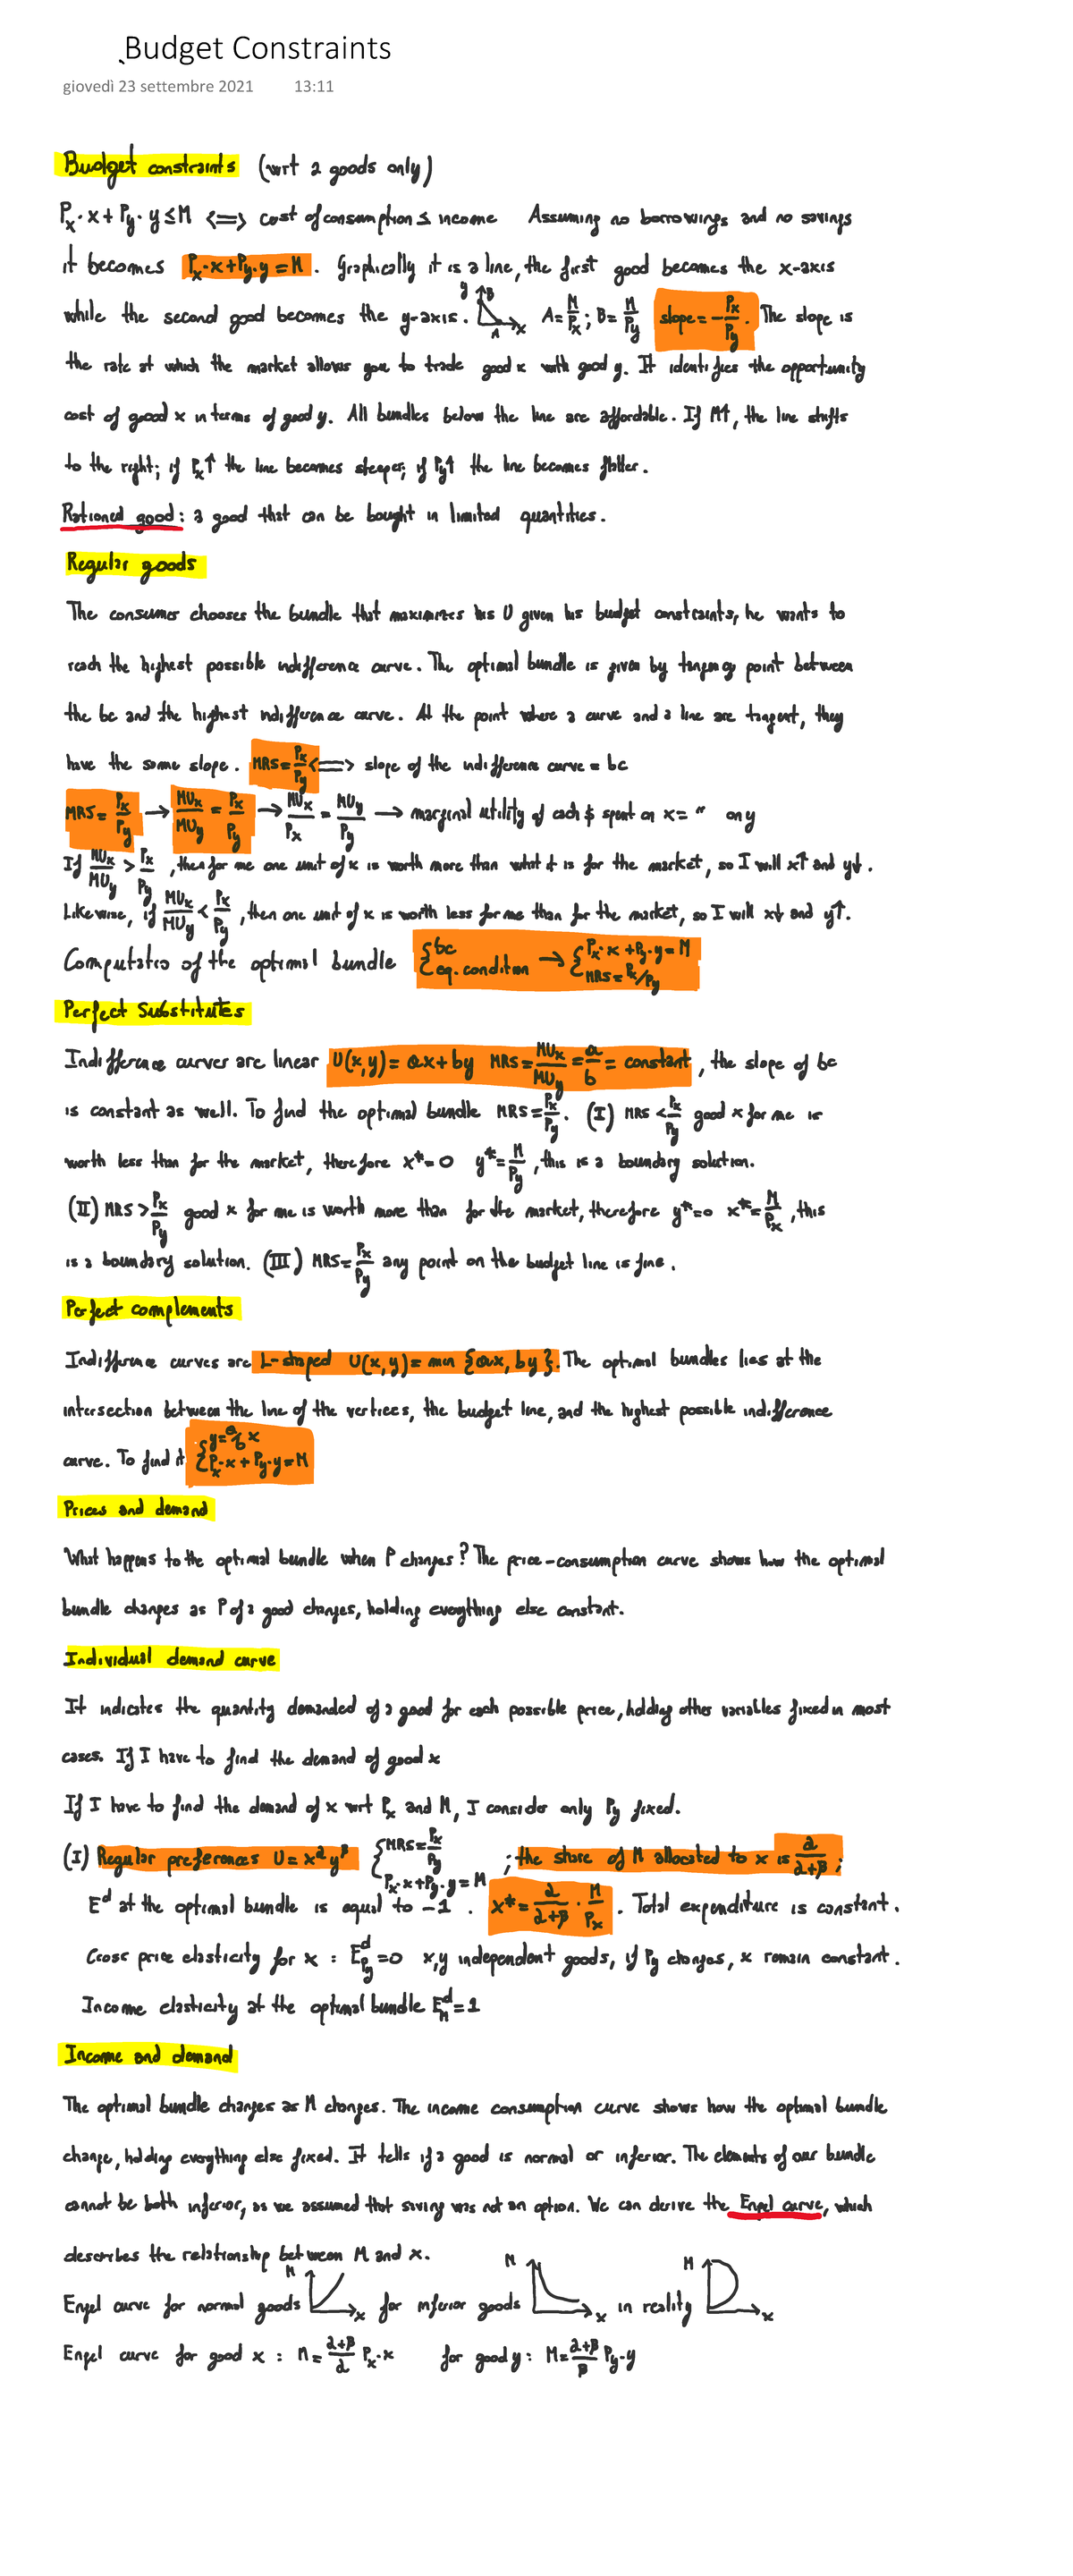 Budget Constraints
giovedì 23 settembre 2021 13:11
Budget constraints (wrt 2 goods only)
Px·x + Py·y ≤ M <=> cost of consumption ≤ income Assuming no borrowings and no savings
it becomes Px·x + Py·y = M. Graphically it is a line, the first good becomes the x-axis
while the second good becomes the y-axis. y B A x A = M/Px; B = M/Py slope = -Px/Py. The slope is
the rate at which the market allows you to trade good x with good y. It identifies the opportunity
cost of good x in terms of good y. All bundles below the line are affordable. If M↑, the line shifts
to the right; if Px↑ the line becomes steeper; if Py↑ the line becomes flatter.
Rationed good: a good that can be bought in limited quantities.
Regular goods
The consumer chooses the bundle that maximizes his U given his budget constraints, he wants to
reach the highest possible indifference curve. The optimal bundle is given by tangency point between
the bc and the highest indifference curve. At the point where a curve and a line are tangent, they
have the same slope. MRS = Px/Py <=> slope of the indifference curve = bc
MRS = Px/Py → MUx/MUy = Px/Py → MUx/Px = MUy/Py → marginal utility of each $ spent on x = " on y
If MUx/MUy > Px/Py, then for me one unit of x is worth more than what it is for the market, so I will x↑ and y↓.
Likewise, if MUx/MUy < Px/Py, then one unit of x is worth less for me than for the market, so I will x↓ and y↑.
Computatio of the optimal bundle { bc eq. condition → { Px·x + Py·y = M MRS = Px/Py
Perfect Substitutes
Indifference curves are linear U(x,y) = ax + by MRS = MUx/MUy = a/b = constant, the slope of bc
is constant as well. To find the optimal bundle MRS = Px/Py. (I) MRS < Px/Py good x for me is
worth less than for the market, therefore x* = 0 y* = M/Py, this is a boundary solution.
(II) MRS > Px/Py good x for me is worth more than for the market, therefore y* = 0 x* = M/Px, this
is a boundary solution. (III) MRS = Px/Py any point on the budget line is fine.
Perfect complements
Indifference curves are L-shaped U(x,y) = min {ax, by}. The optimal bundles lies at the
intersection between the line of the vertices, the budget line, and the highest possible indifference
curve. To find it { y = a/b x Px·x + Py·y = M
Prices and demand
What happens to the optimal bundle when P changes? The price-consumption curve shows how the optimal
bundle changes as P of a good changes, holding everything else constant.
Individual demand curve
It indicates the quantity demanded of a good for each possible price, holding other variables fixed in most
cases. If I have to find the demand of good x
If I have to find the demand of x wrt Px and M, I consider only Py fixed.
(I) Regular preferences U = x^α y^β { MRS = Px/Py Px·x + Py·y = M ; the share of M allocated to x is α/(α+β);
E^d at the optimal bundle is equal to -1. x* = α/(α+β) · M/Px. Total expenditure is constant.
Cross price elasticity for x: E^d_Py = 0 x,y independent goods, if Py changes, x remain constant.
Income elasticity at the optimal bundle E^d_M = 1
Income and demand
The optimal bundle changes as M changes. The income consumption curve shows how the optimal bundle
change, holding everything else fixed. It tells if a good is normal or inferior. The elements of our bundle
cannot be both inferior, as we assumed that saving was not an option. We can derive the Engel curve, which
describes the relationship between M and x.
Engel curve for normal goods M x for inferior goods M x in reality M x
Engel curve for good x: M = (α+β)/α Px·x for good y: M = (α+β)/β Py·y